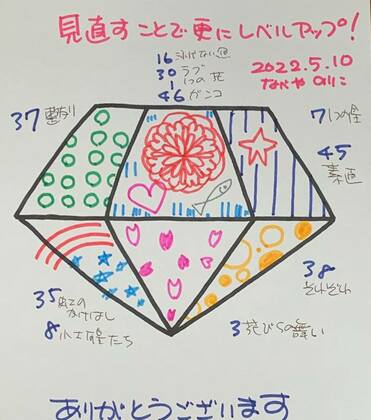 見直すことで更にレベルアップ!
2022.5.10
16
30 ラブ
1つの花
46 ガンコ
37
7つの星
45
素直
38
それぞれ
35 虹の
かけはし
8 小さな星たち
3 花びらの舞い
ありがとうございます